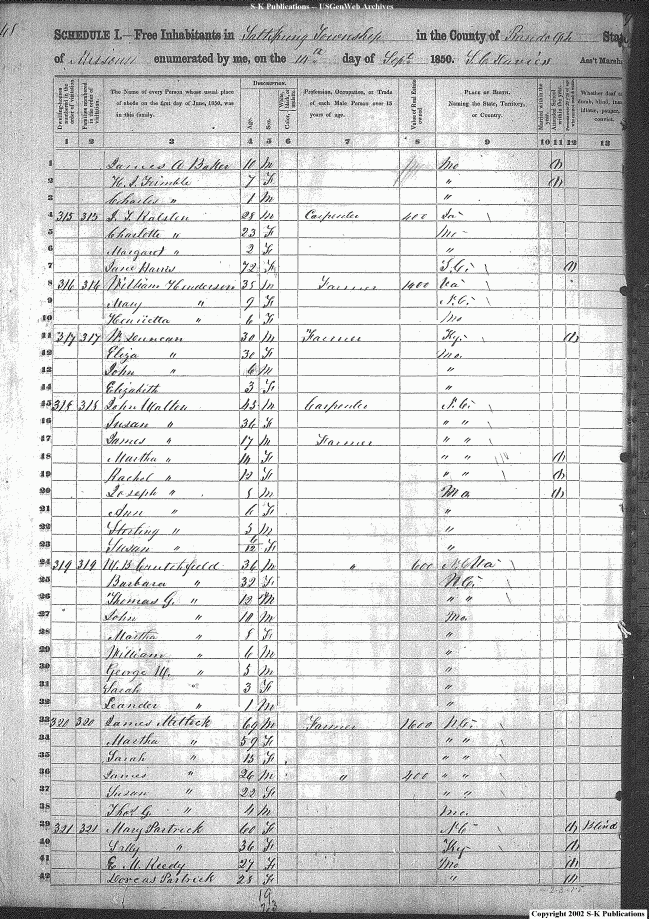 S-K Publications -- USGenWeb Archives
SCHEDULE I.—Free Inhabitants in Saltspring Township in the County of Randolph State
of Missouri enumerated by me, on the 14th day of Sept. 1850. Ass't Marsh
Dwelling-houses numbered in the order of visitation. Families numbered in the order of visitation. The Name of every Person whose usual place of abode on the first day of June, 1850, was in this family. DESCRIPTION. Age. Sex. Color, White, black, or mulatto. Profession, Occupation, or Trade of each Male Person over 15 years of age. Value of Real Estate owned PLACE OF BIRTH. Naming the State, Territory, or Country. Married within the year. Attended School within the year. Whether deaf
1 2 3 4 5 6 7 8 9 10 11 12 13
1 James A Baker 10 M Mo 1
2 7 F " 1
3 Charles " 1 M "
4 315 315 J. T. Ralston 28 M Carpenter 400
5 Charlotte " 23 F Mo
6 Margaret " 2 F "
7 Jane Harris 72 F S.C. 1
8 316 316 William Henderson 35 M Farmer 1400 Va
9 Mary " 9 F N.C.
10 Henrietta " 6 F Mo
11 317 317 W. Duncan 30 M Farmer Ky. 1
12 Eliza " 30 F Mo.
13 John " 6 M "
14 Elizabeth 3 F "
15 318 318 John Walten 43 M Carpenter N.C.
16 Susan " 36 F " "
17 James " 17 M Farmer " "
18 Martha " 14 F " " 1
19 Rachel " 12 F " " 1
20 Joseph " 8 M Mo 1
21 Ann " 6 F "
22 Sterling " 3 M "
23 Susan " 6/12 F "
24 319 319 W. B. Crutchfield 36 M " 600 Va
25 Barbara " 32 F N.C.
26 Thomas G. " 12 M " "
27 John " 10 M Mo.
28 Martha " 8 F "
29 William " 6 M "
30 George W. " 5 M "
31 Sarah " 3 F "
32 Leander " 1 M "
33 320 320 James 69 M Farmer 1600 N.C.
34 Martha " 59 F " "
35 Sarah " 15 F " "
36 James " 26 M " 400 " "
37 Susan " 22 F " "
38 Thos G. " 4 M Mo.
39 321 321 Mary Partrick 60 F N.C. 1 Blind
40 Sally " 36 F Ky 1
41 E. M. Reedy 27 F Mo 1
42 Dorcas Partrick 28 F " 1
Copyright 2002 S-K Publications